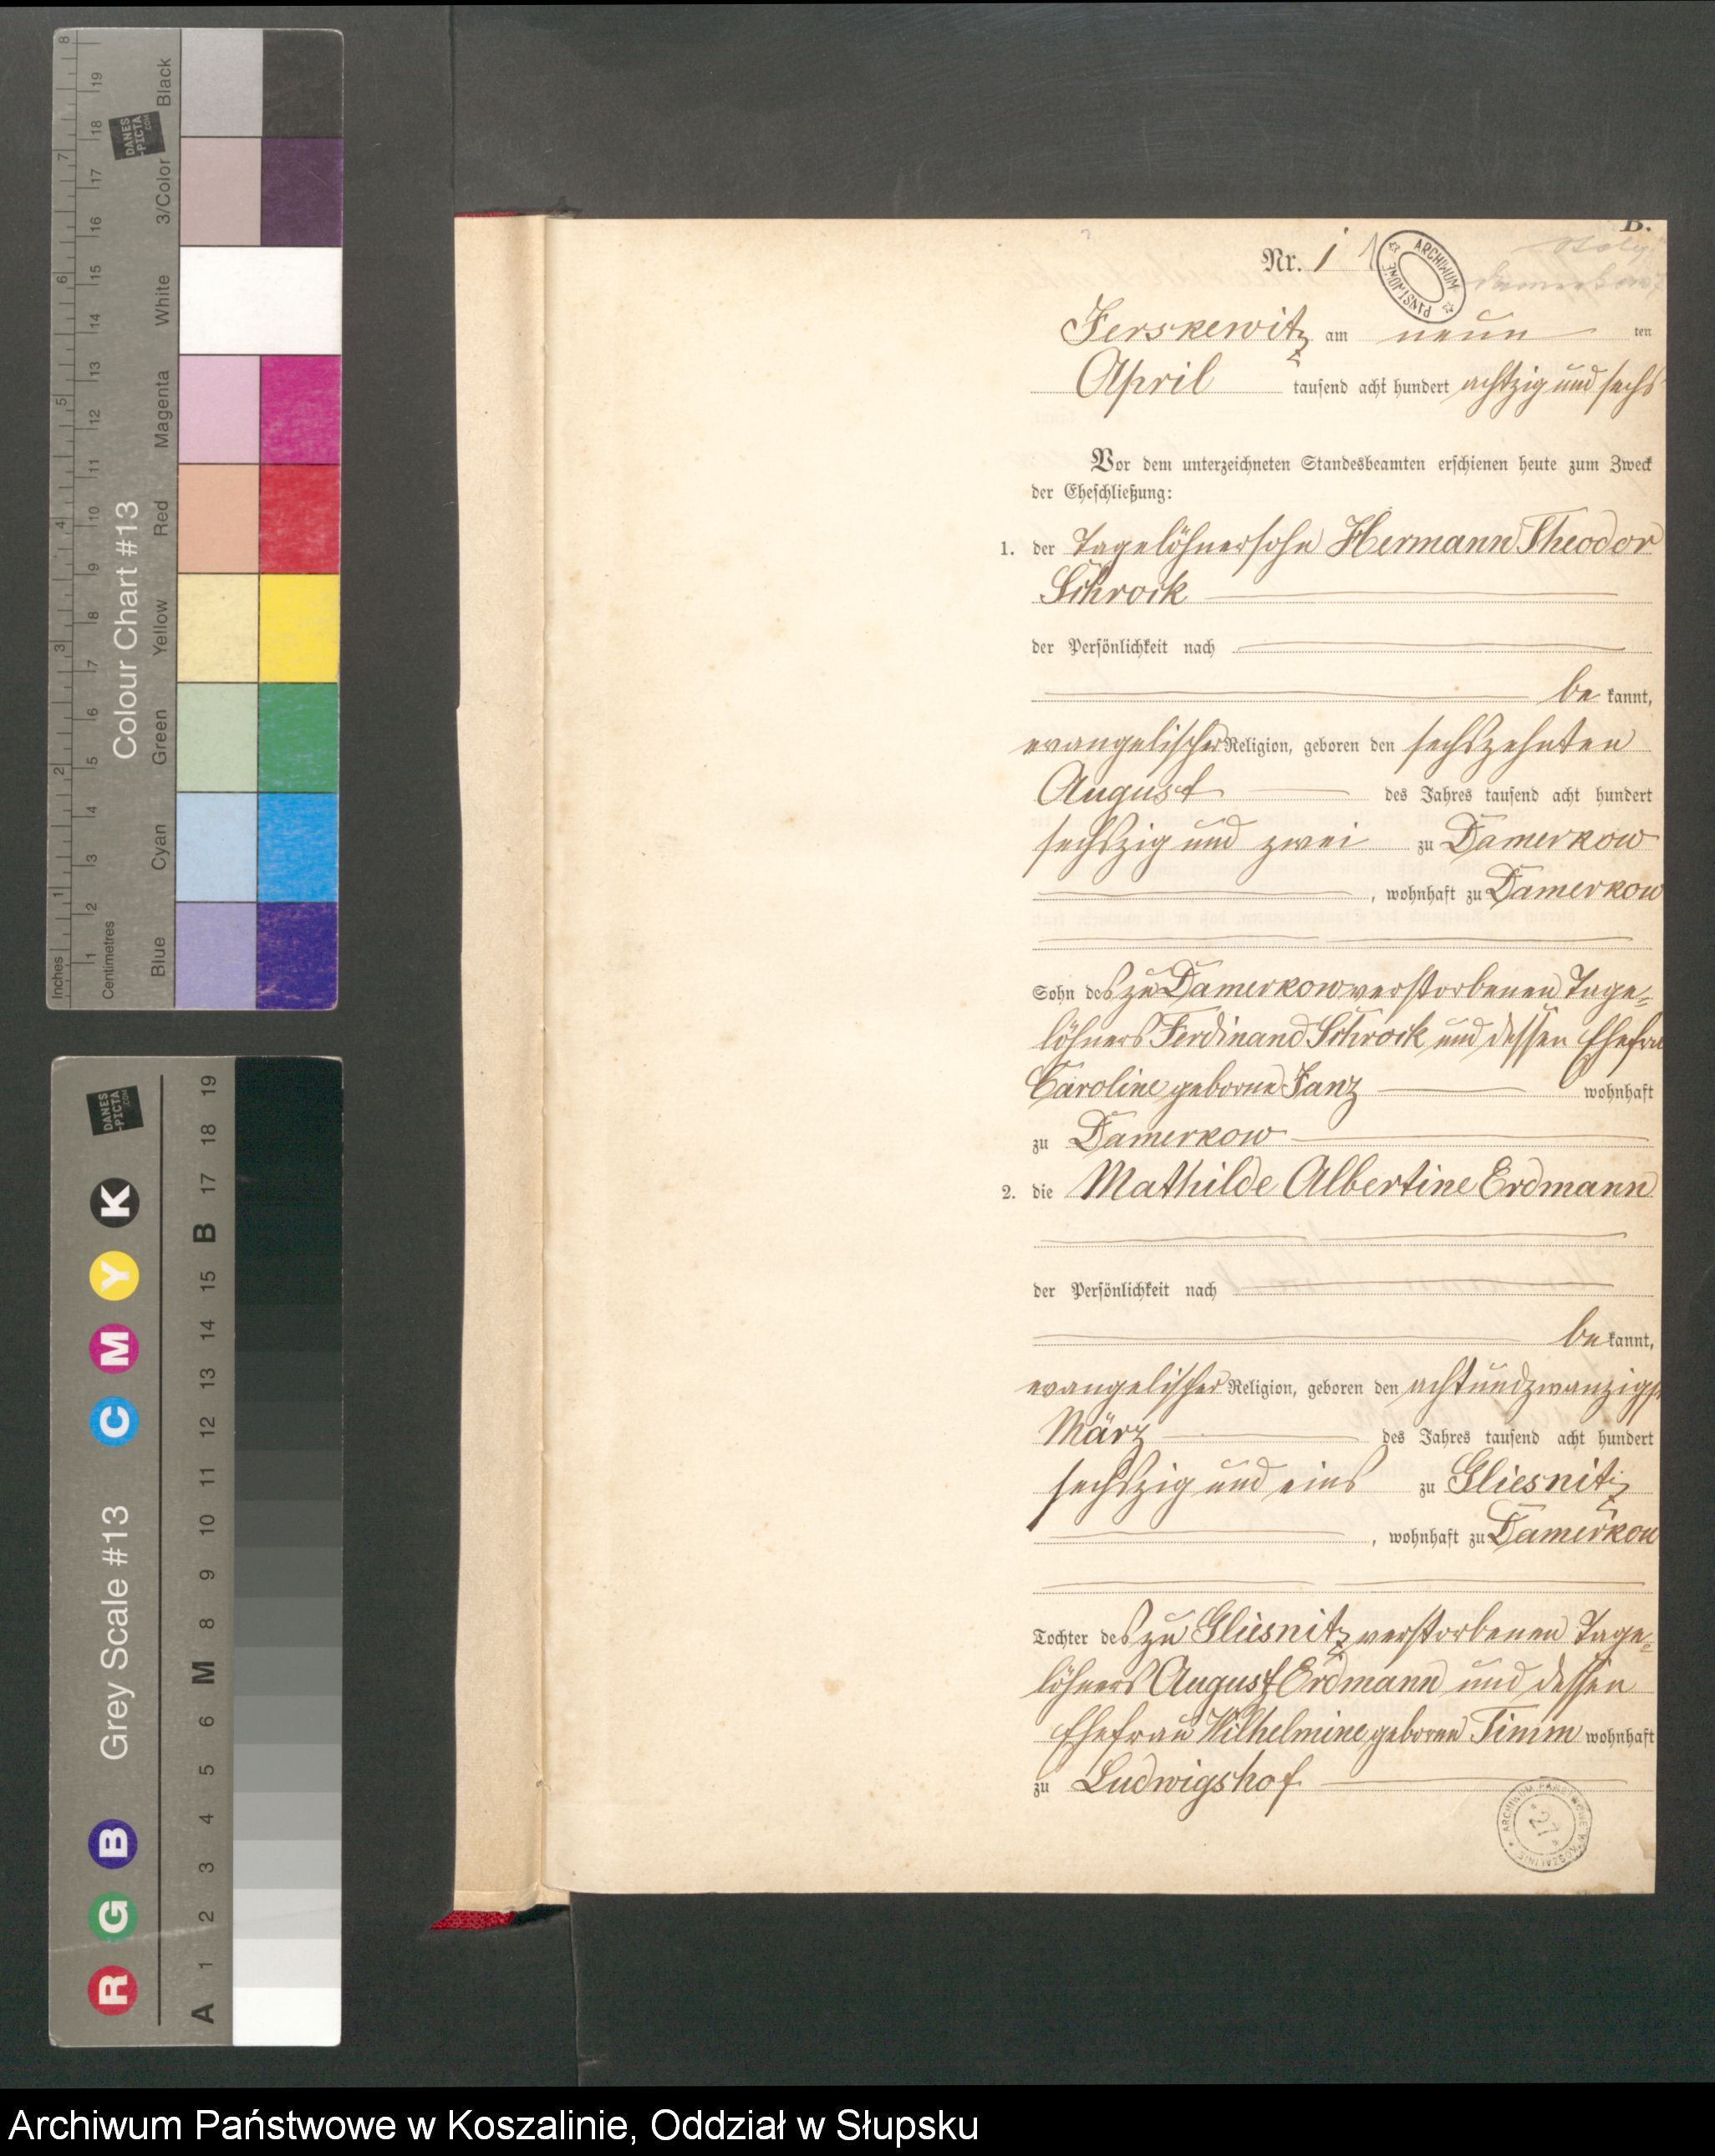 B.
Nr. 1
ARCHIWUM PAŃSTWOWE
Jerskewitz am neun ten
April tausend acht hundert achtzig und sechs
Vor dem unterzeichneten Standesbeamten erschienen heute zum Zweck
der Eheschließung:
1. der Tagelöhnersohn Hermann Theodor
Schrock
der Persönlichkeit nach
be kannt,
evangelischer Religion, geboren den sechszehnten
August des Jahres tausend acht hundert
sechszig und zwei zu Damerkow
, wohnhaft zu Damerkow
Sohn des zu Damerkow verstorbenen Tage=
löhners Ferdinand Schrock und dessen Ehefrau
Caroline geborne Janz wohnhaft
zu Damerkow
2. die Mathilde Albertine Erdmann
der Persönlichkeit nach
be kannt,
evangelischer Religion, geboren den achtundzwanzigst
März des Jahres tausend acht hundert
sechszig und eins zu Gliesnitz
, wohnhaft zu Damerkow
Tochter des zu Gliesnitz verstorbenen Tage=
löhners August Erdmann und dessen
Ehefrau Wilhelmine geborne Timm wohnhaft
zu Ludwigshof
ARCHIWUM PAŃSTWOWE W KOSZALINIE
Inches
Centimetres
Colour Chart #13
Blue Cyan Green Yellow Red Magenta White 3/Color Black
DANES
-PICTA
.COM
1 2 3 4 5 6 7 8
1 2 3 4 5 6 7 8 9 10 11 12 13 14 15 16 17 18 19
Grey Scale #13
R G B C M Y K
DANES
-PICTA
.COM
A 1 2 3 4 5 6 M 8 9 10 11 12 13 14 15 B 17 18 19
Archiwum Państwowe w Koszalinie, Oddział w Słupsku